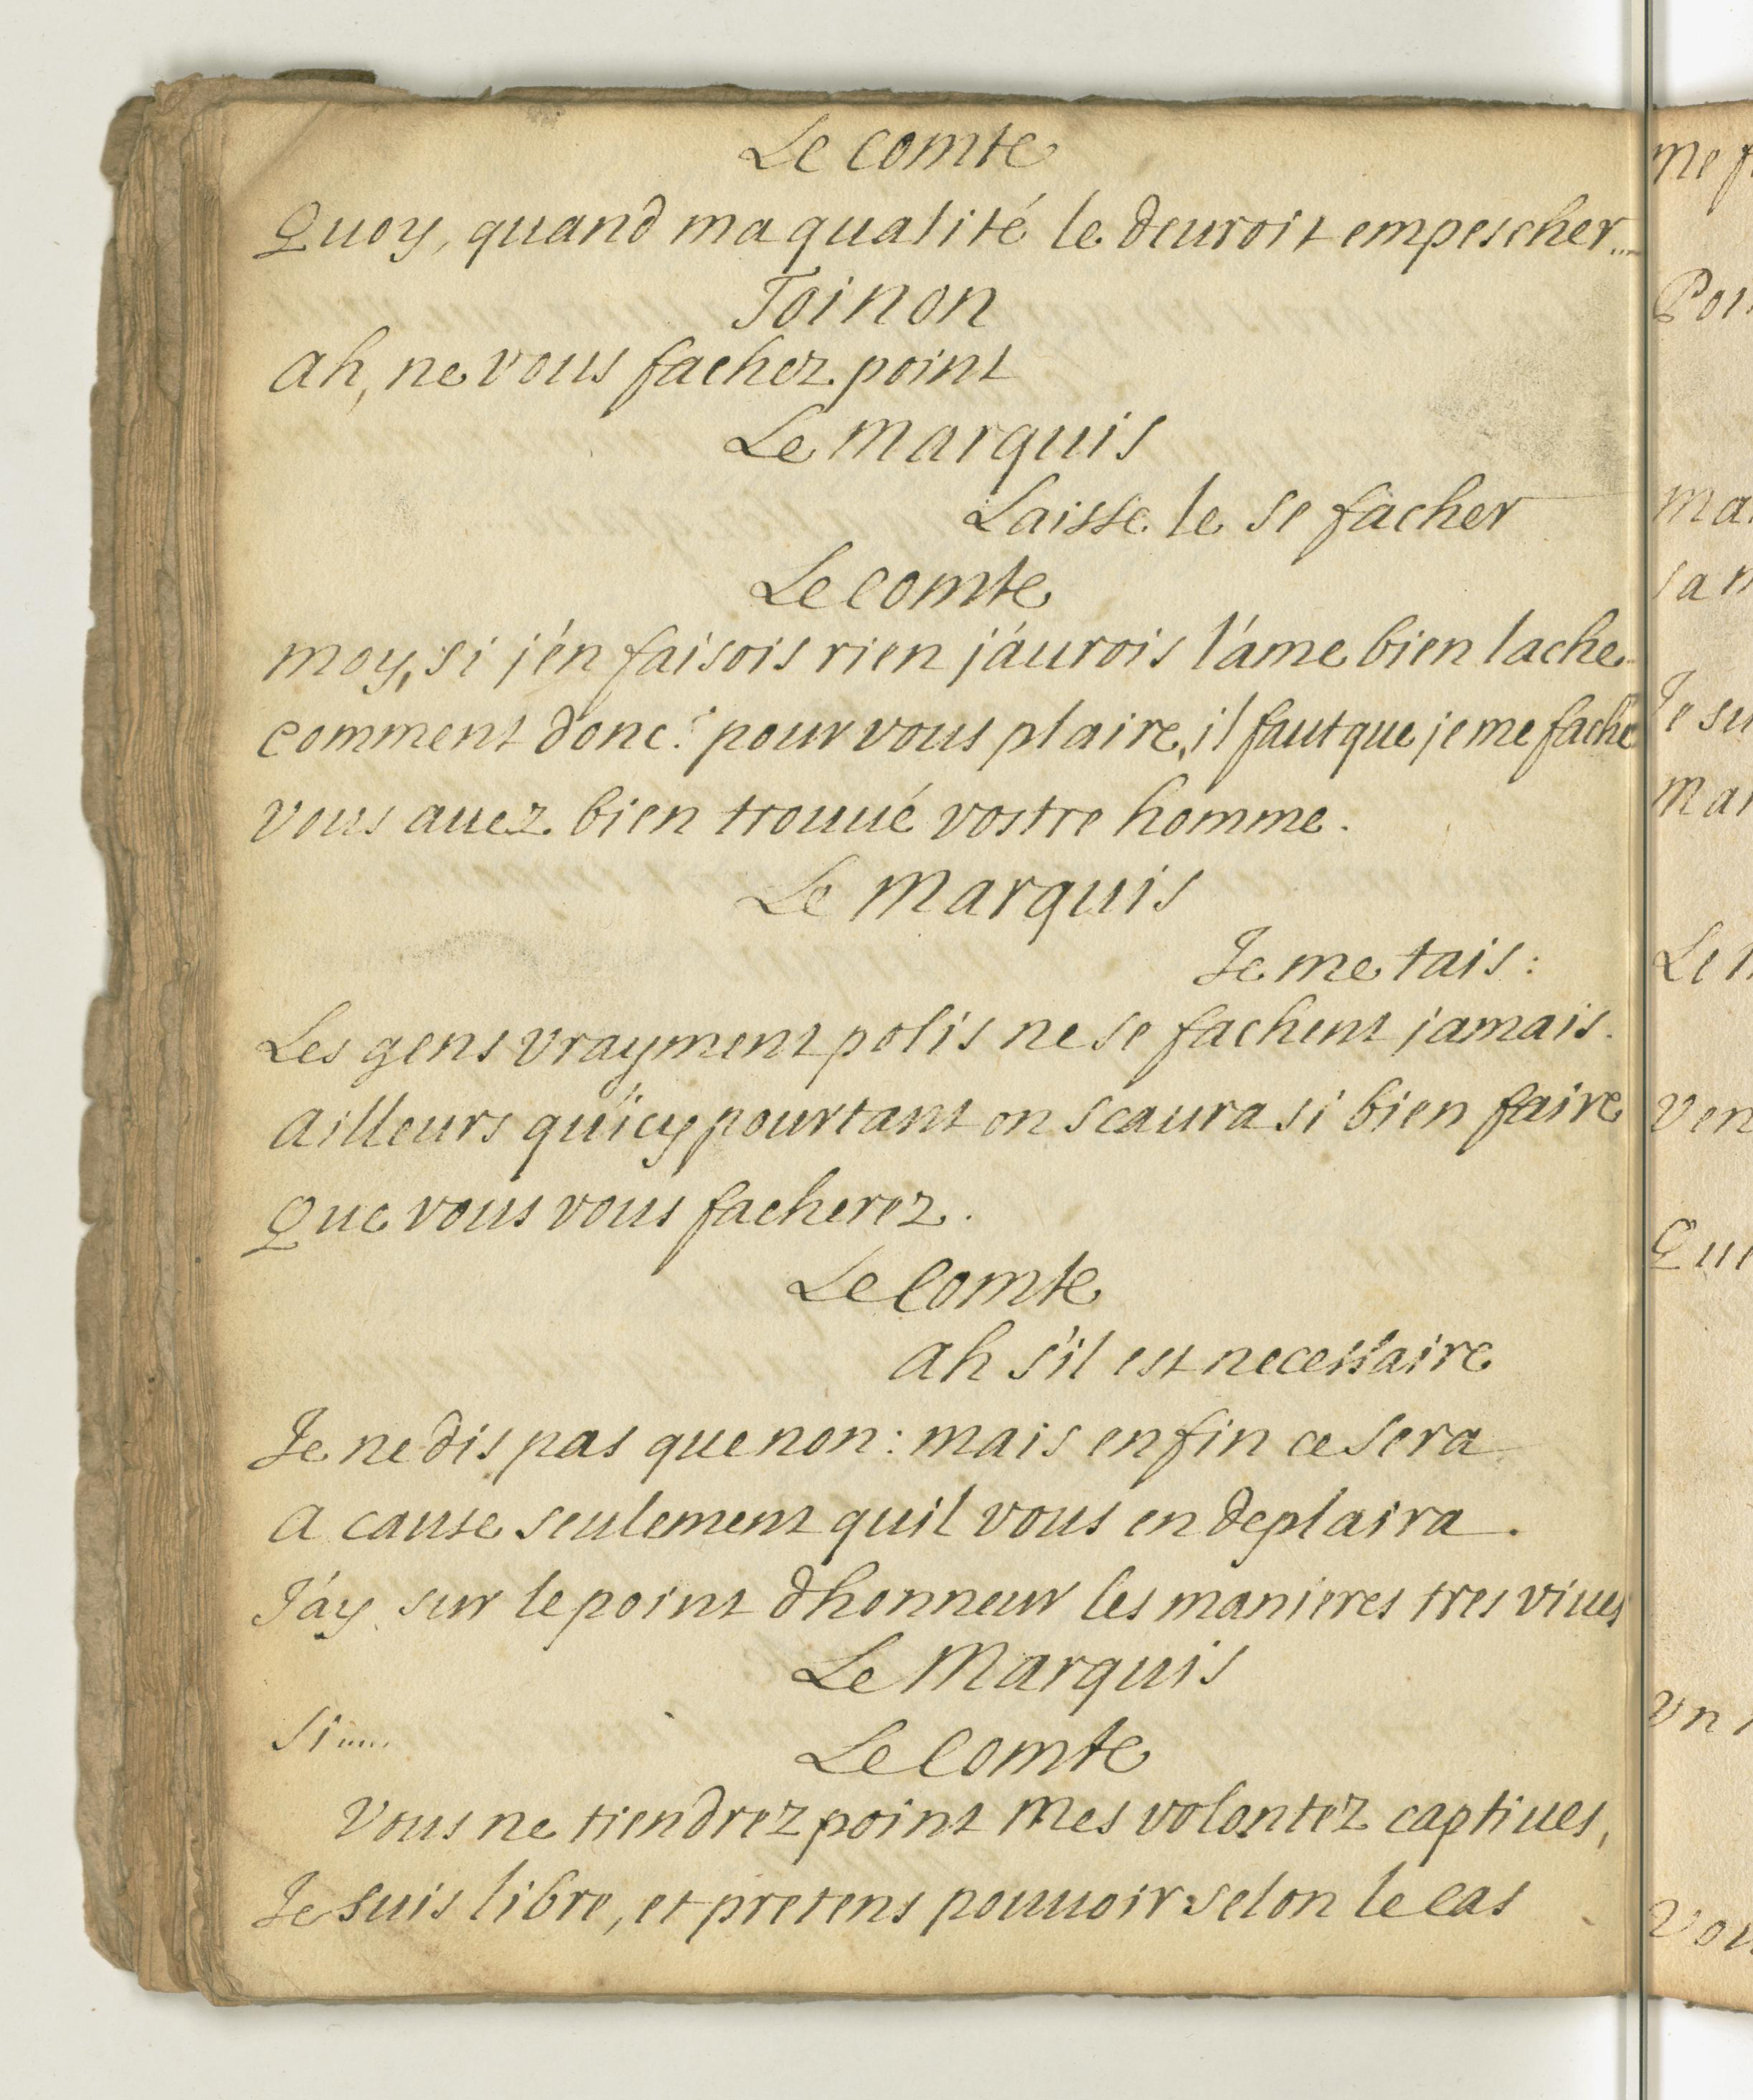 Le comte
Quoy, quand ma qualité le deuroit empescher....
Toinon
ah, ne vous fachez point
Le marquis
Laisse le se facher
Le comte
moy, si j'en faisois rien j'aurois l'ame bien lache.
comment donc? pour vous plaire, il faut que je me fache
vous auez bien trouué vostre homme.
Le Marquis
Je me tais:
Les gens vrayment polis ne se fachent jamais.
ailleurs qu'icy pourtant on scaura si bien faire
Que vous vous facherez.
Le Comte
ah s'il est necessaire
Je ne dis pas que non: mais enfin ce sera
a cause seulement quil vous en deplaira.
J'ay sur le point dhonneur les manieres tres viues
Le Marquis
Si.....
Le Comte
Vous ne tiendrez point mes volontez captiues,
Je suis libre, et pretens pouuoir selon le cas
me f
Pou
ma
san
Je su
mar
Le
ven
Qui
vn
Vou